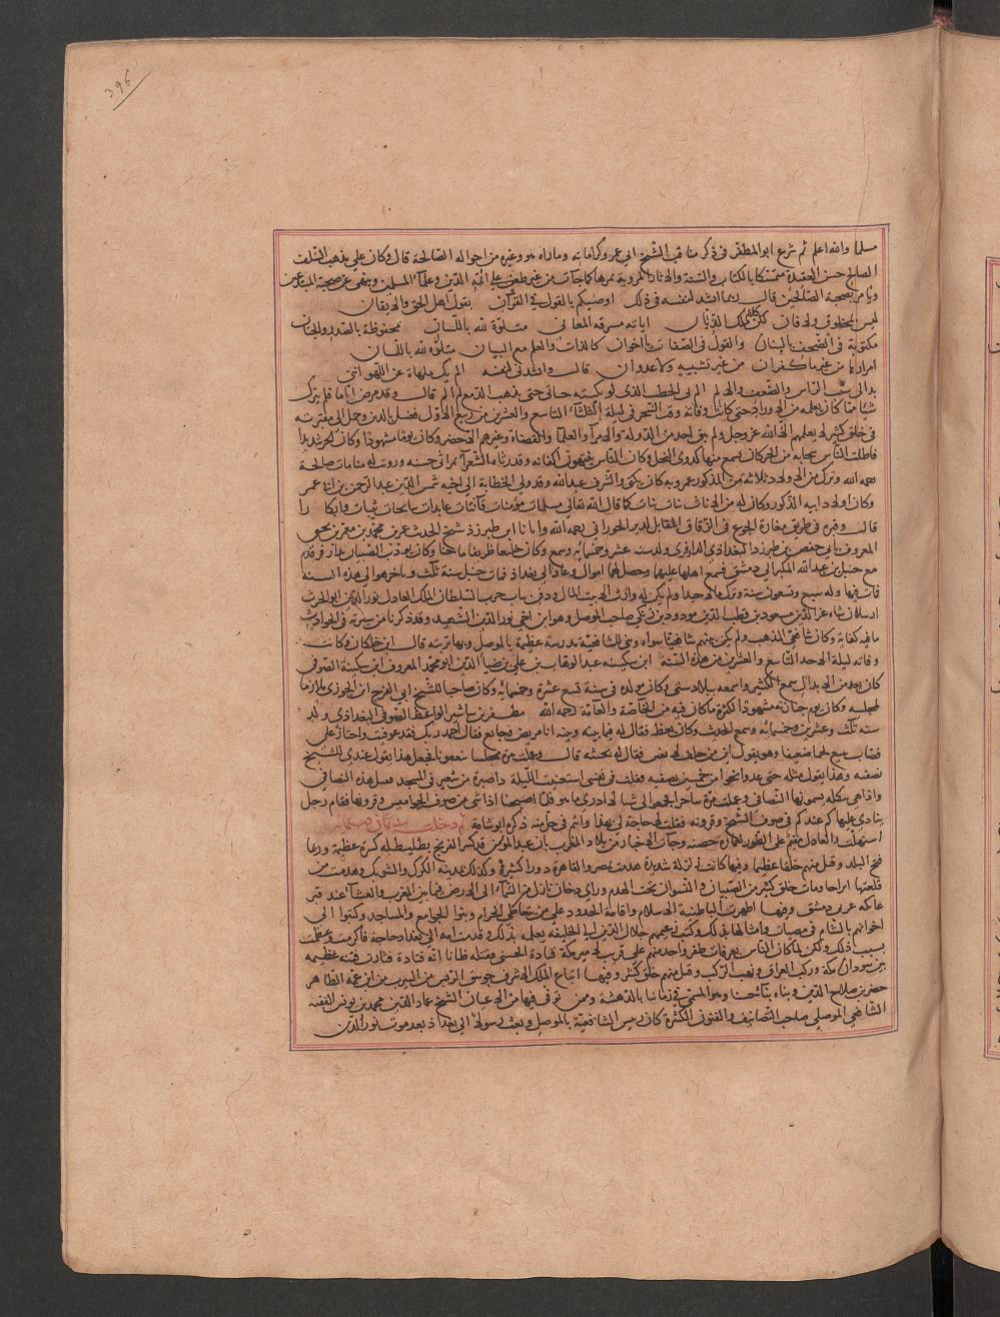 396
مسلما والله اعلم ثم شرع ابو المظفر فى ذكر مناقب الشيخ ابى عمر وكراماته وما راه هو وغيره من احواله الصالحة قال وكان على مذهب السلف
الصالح حسن العقيدة متمسكا بالكتاب والسنة والاثار المروية يمرها كما جات من غير طعن على ائمة الدين وعلماء المسلمين وينهى عن صحبة المبتدعين
ويامر بصحبة الصالحين قال ربما انشد لنفسه فى ذلك اوصيكم بالقول فى القرآن بقول اهل الحق والايقان
ليس بمخلوق ولا فان لكن كلام الملك الديان اياته مشرقه المعانى متلوة لله باللسان محفوظة بالصدر والجنان
مكتوبة فى الصحف بالبنان والقول فى الصفات يا اخوان كالذات والعلم مع البيان متلوة لله باللسان
امرارها من غير ما كفران من غير تشبيه ولا عدوان قال وانشدنى لنفسه الم يك ملهاة عن اللهو اننى
بدا لى شيب الراس والضعف والالم الم بى الخطب الذى لو بكيته حياتى حتى ينفد الدمع لم الم قال وقد مرض اياما فلم يترك
شيا مما كان يعمله من الاوراد حتى كانت وفاته وقت السحر فى ليلة الثلثاء التاسع والعشرين من ربيع الاول فغسل بالدير وحمل الى مقبرته
فى خلق كثير لا يعلمهم الا الله عز وجل ولم يبق احد من الدولة والامرآ والعلمآ والقضاة وغيرهم الا حضر وكان يوما مشهودا وكان الحر شديدا
فاظلت الناس سحابه من الحر كان يسمع منها كدوى النحل وكان الناس ينتهبون اكفانه وقد رثاه الشعرآ بمراثى حسنه ورويت له منامات صالحة
رحمه الله وترك من الاولاد ثلاثه من الذكور عمر وبه كان يكنى والشرف عبد الله وقد ولى الخطابة الى اخيه شمس الدين عبد الرحمن بن ابى عمر
وكان اولاد ابيه الذكور وكان له من الاناث بنات كما قال الله تعالى مسلمات مؤمنات قانتات عابدات سايحات ثيبات وابكارا
قال وقبره فى طريق مغارة الجوع فى الزقاق المقابل لدير الحورانى رحمه الله وايانا ابن طبرزد شيخ الحديث عمر بن محمد بن معمر بن يحيى
المعروف بابى حفص بن طبرزد البغدادى الدارقزى ولد سنه عشر وخمسمايه وسمع وكان خليعا ظريفا ماجنا وكان يودب الصبيان بدار قز قدم
مع حنبل بن عبد الله المكبر الى دمشق فسمع اهلها عليهما وحصل لهما اموال وعادا الى بغداد فمات حنبل سنة ثلث وتاخر هو الى هذه السنه
فمات فيها وله سبع وتسعون سنة وترك مالا جيدا ولم يكن له وارث الا بيت المال ودفن بباب حرب السلطان الملك العادل نور الدين ابو الحرث
ارسلان شاه عز الدين مسعود بن قطب الدين مودود بن زنكى صاحب الموصل وهو ابن اخى نور الدين الشهيد وقد ذكرنا من سيرته فى الحوادث
ما فيه كفاية وكان شافعى المذهب ولم يكن بينهم شافعيا سواه وبنى للشافعية مدرسة عظيمة بالموصل وبها تربته قال ابن خلكان وكانت
وفاته ليلة الاحد التاسع والعشرين من هذه السنة ابن سكينه عبد الوهاب بن على بن ضيا الدين ابو محمد المعروف ابن سكينة الصوفى
كان يعد من الابدال سمع الكثير واسمعه ببلاد شتى وكان مولده فى سنة تسع عشرة وخمسمايه وكان صاحبا للشيخ ابى الفرج ابن الجوزى ملازما
لمجلسه وكان يوم جنازته مشهودا لكثرة ما كان فيه من الخاصة والعامة رحمه الله مظفر بن شاشير الواعظ الصوفى البغدادى ولد
سنه ثلث وعشرين وخمسمائه وسمع الحديث وكان يعظ فقال له فيما بينه وبينه انا مريض وجايع فقال احمد ربك فقد عوفيت واجتاز على
قصاب يبيع لحما ضعيفا وهو يقول اين من حلف لا يغبن فقال له تحنثه قال وعملت مرة مجلسا ببعقوبا فجعل هذا يقول عندى للشيخ
نصفيه وهذا يقول مثله حتى عدوا نحوا من خمسين نصفيه فقلت فى نفسى استغنيت الليلة فاصبح فاذا صبرة من شعير فى المسجد فقيل هذه النصافى
واذا هى بكله يسمونها النصافى وعملت مرة بباجسرا فجمعوا لى شيا لا ادرى ما هو فلما اصبحنا اذا شى من صوف الجواميس وقرونها فقام رجل
ينادى عليها كم عندكم فى صوف الشيخ وقرونه فقلت لا حاجة لى بهذا وانتم فى حل منه ذكره ابو شامة ثم دخلت سنة ثمان وستمائه
استهلت والعادل مقيم على الطور لعماره حصنه وجآت الاخبار من بلاد المغرب بان عبد المومن قد كسر الفرنج بطليطلة كسرة عظيمة وربما
فتح البلد وقتل منهم خلقا عظيما وفيها كانت زلزلة شديدة هدمت بمصر والقاهرة دورا كثيرة وكذلك بمدينه الكرك والشوبك وهدمت من
قلعتها ابراجا ومات خلق كثير من الصبيان والنسوان تحت الهدم وراى دخان نازل من السمآء الى الارض فيما بين المغرب والعشآ عند قبر
عاتكه غربى دمشق وفيها اظهرت الباطنية الاسلام واقامة الحدود على من تعاطى الحرام وبنوا الجوامع والمساجد وكتبوا الى
اخوانهم بالشام فى مصيات وامثالها بذلك وكتب زعيمهم جلال الدين الى الخليفه يعلمه بذلك وقدمت امه الى بغداد حاجة فاكرمت وعظمت
بسبب ذلك ولكن لما كان الناس بعرفات ظفر واحد منهم على قريب لامير مكة قتادة الحسنى فقتله ظانا انه قتادة فثارت فتنه عظيمه
بين سودان مكة وركب العراق ونهب الركب وقتل منهم خلق كثير وفيها ابتاع الملك الاشرف جوسق الريس من النيرب من ابن عمه الظاهر
خضر بن صلاح الدين وبناه بناء حسنا وهو المسمى فى زماننا بالدهشة وممن توفى فيها من الاعيان الشيخ عماد الدين محمد بن يونس الفقيه
الشافعى الموصلى صاحب التصانيف والفنون الكثيرة كان رييس الشافعية بالموصل وبعث رسولا الى بغداد بعد موت نور الدين